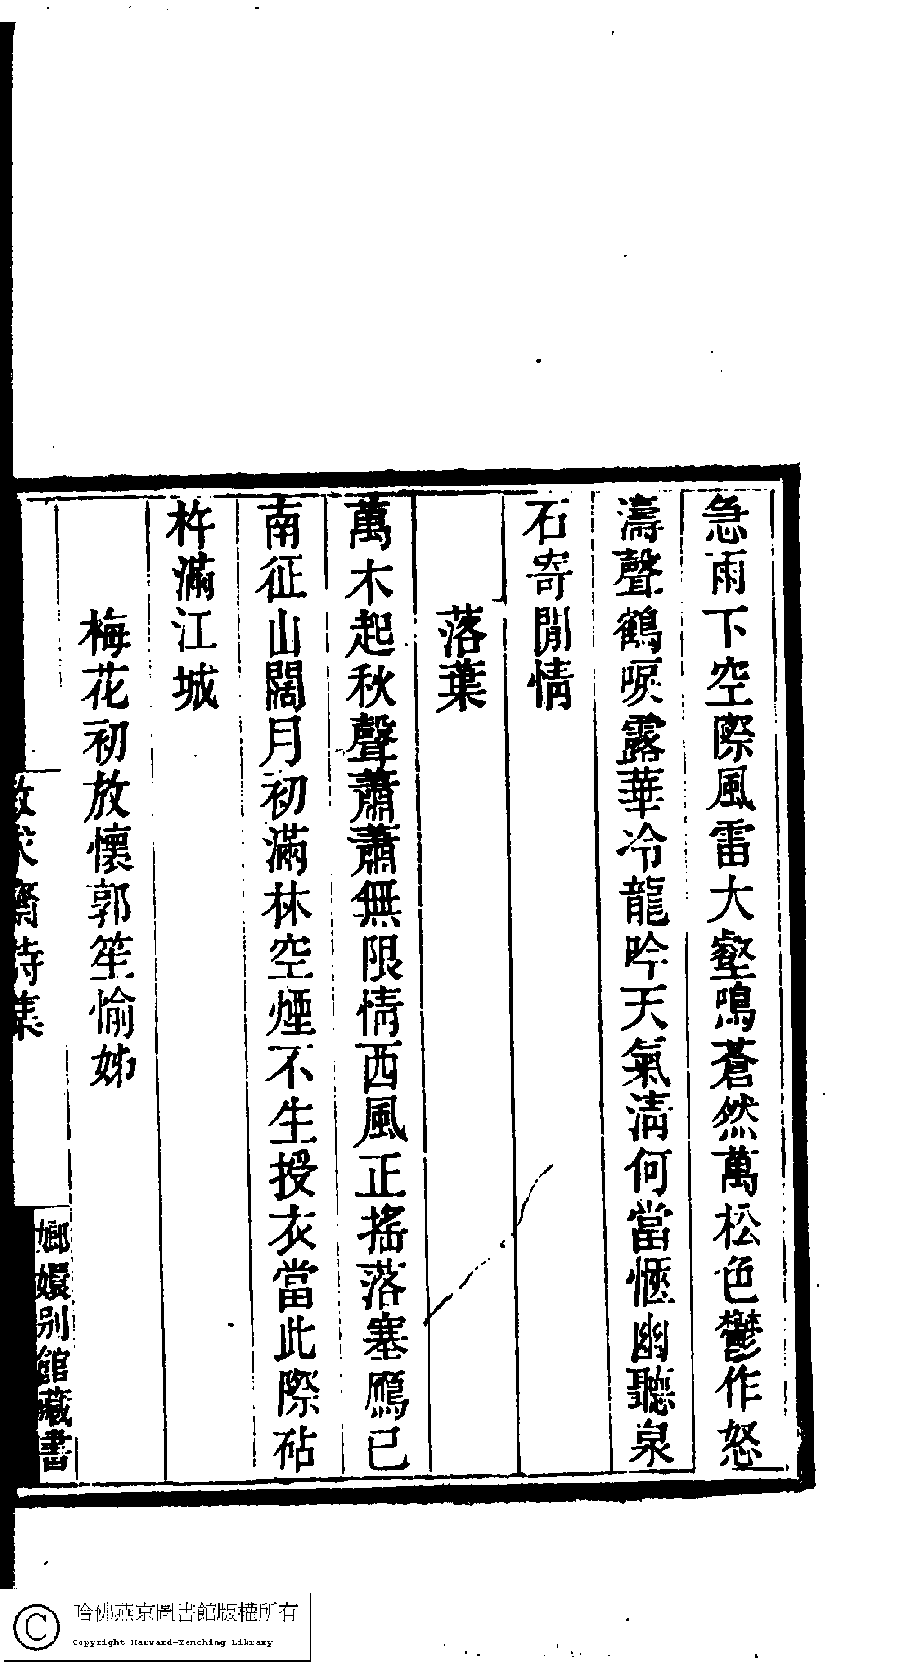 急雨下空際風雷大壑鳴蒼然萬松色鬱作怒
濤聲鶴唳露華冷龍吟天氣清何當愜幽聽泉
石寄閒情
落葉
萬木起秋聲蕭蕭無限情西風正搖落塞鴈已
南征山闊月初滿林空煙不生授衣當此際砧
杵滿江城
梅花初放懷郭笙愉姊
敏求齋詩集
嫏嬛别館藏書
哈佛燕京圖書館版權所有
Copyright Harvard-Yenching Library